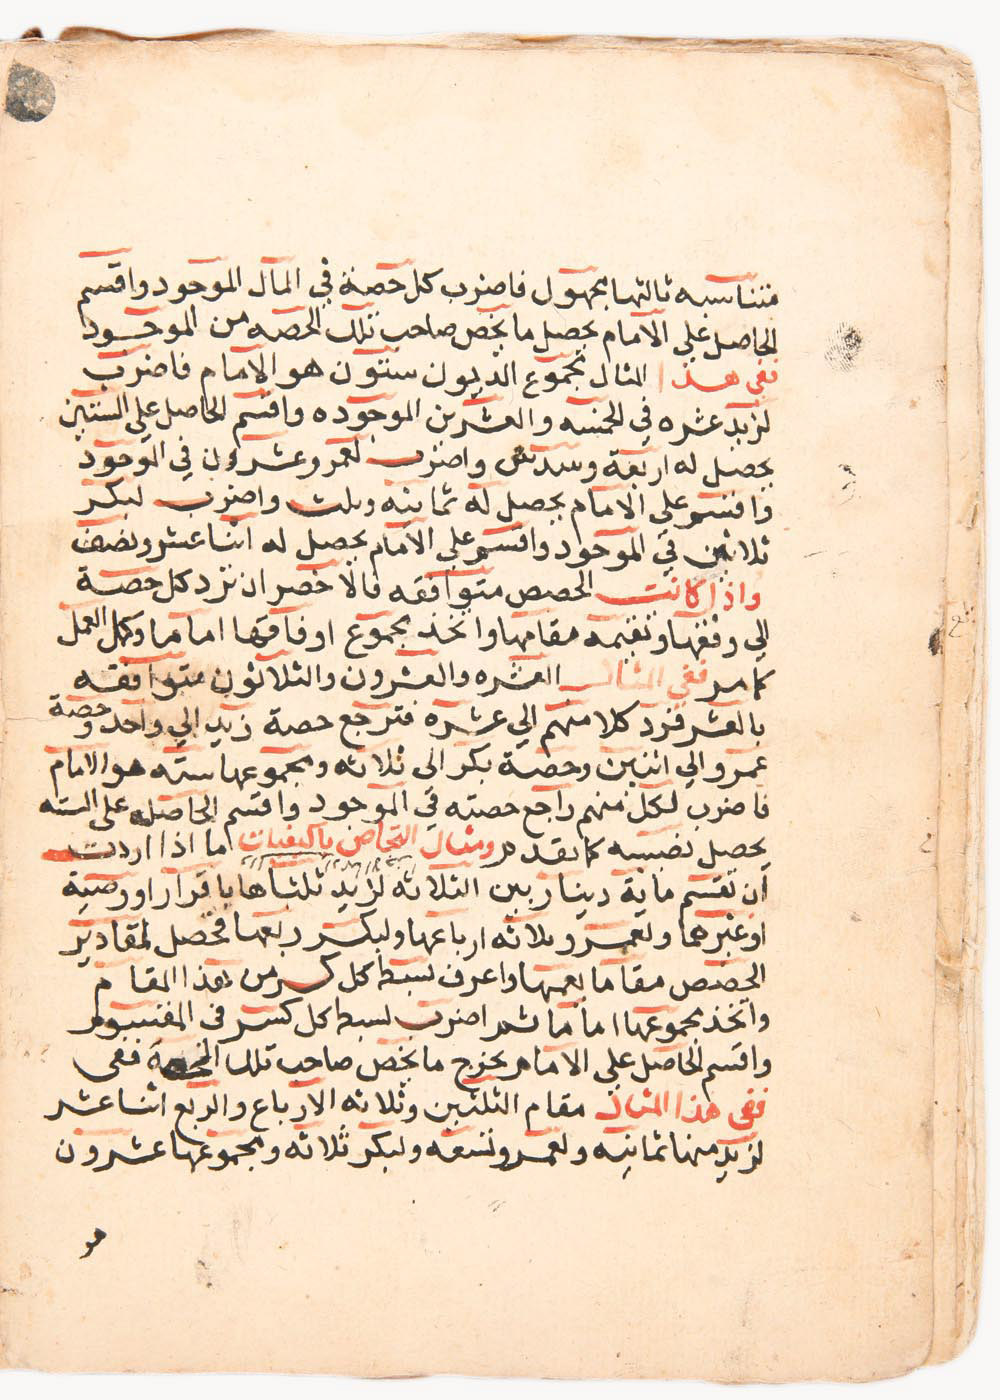 متناسبه ثالثها مجهول فاضرب كل حصة في المال الموجود واقسم
الحاصل علي الامام يحصل ما يخص صاحب تلك الحصه من الموجود
ففي هذا المثال مجموع الديون ستون هو الامام فاضرب
لزيد عشره في الخمسه والعشرين الموجوده واقسم الحاصل علي الستين
يحصل له اربعة وسدس واضرب لعمرو عشرون في الموجود
واقسم علي الامام يحصل له ثمانيه وثلث واضرب لبكر
ثلاثين في الموجود واقسم علي الامام يحصل له اثناعشر ونصف
واذا كانت الحصص متوافقه فالاخصر ان ترد كل حصة
الي وفقها وتقيمه مقامها واتخذ مجموع اوفاقها اماما وكمل العمل
كما مر ففي المثال العشره والعشرون والثلاثون متوافقه
بالعشر فترد كلا منهم الي عشره فترجع حصة زيد الي واحد وحصة
عمرو الي اثنين وحصة بكر الي ثلاثه ومجموعها سته هو الامام
فاضرب لكل منهم راجع حصته في الموجود واقسم الحاصل علي السته
يحصل نصيبه كما تقدم ومثال التحاص بالكيفيات اما اذا اردت
ان تقسم ماية دينار بين الثلاثه لزيد ثلثاها باقرار او وصية
او غيرهما ولعمرو ثلاثه ارباعها ولبكر ربعها فحصل لمقادير
الحصص مقاما يعمها واعرف بسط كل كسر من هذا المقام
واتخذ مجموعها اماما ثم اضرب بسط كل كسر في المقسوم
واقسم الحاصل علي الامام يخرج ما يخص صاحب تلك الحصة ففي
ففي هذا المثال مقام الثلثين وثلاثه الارباع والربع اثناعشر
لزيد منها ثمانيه ولعمرو تسعه ولبكر ثلاثه ومجموعها عشرون
هو